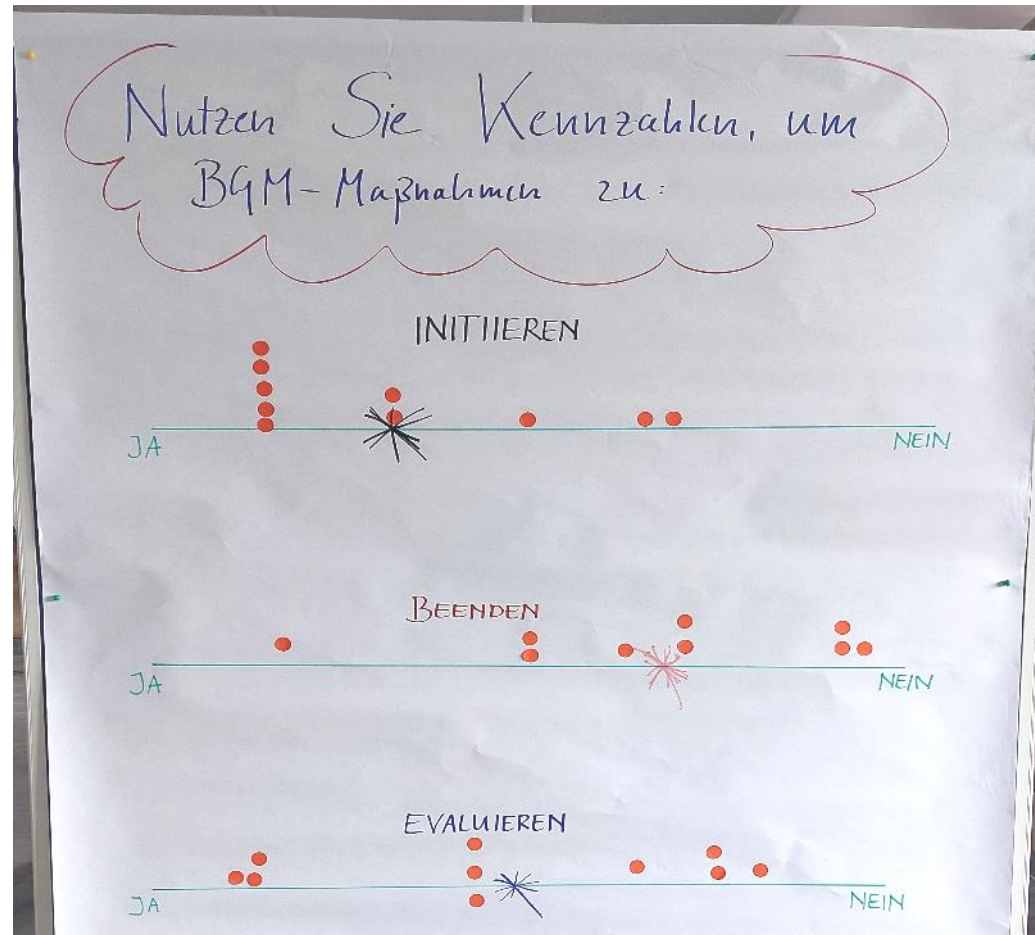 Nutzen Sie Kennzahlen, um
BGM-Maßnahmen zu:
INITIIEREN
JA
NEIN
BEENDEN
JA
NEIN
EVALUIEREN
JA
NEIN